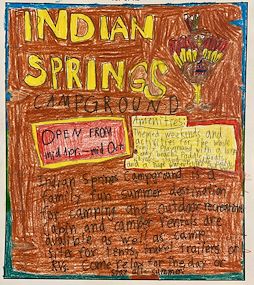 INDIAN
SPRINGS
CAMPGROUND
OPEN FROM:
mid Apri.-mid Oct.
Amenities:
Themed weekends and
activities for the whole
family
Indian Springs Campground is a
family fun summer destination
for camping and outdoor recreation
cabin and camper rentals are
available as well as camp
sits for tents, travel trailers or
RVs. Come relax for the day or
stay all summer.